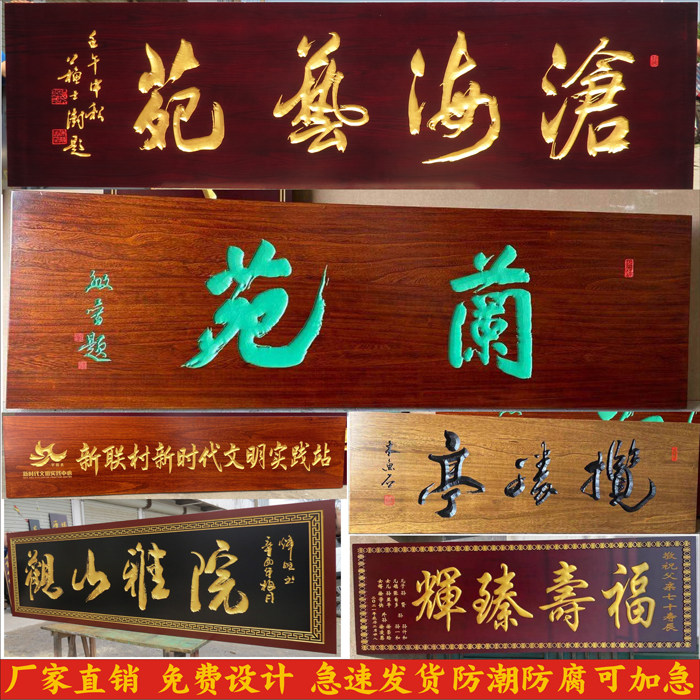 滄海藝苑
壬午中秋
蘇士澍題
蘭苑
新联村新时代文明实践站
新时代文明实践中心
攬勝亭
觀山雅院
敬祝父亲七十寿辰
福壽臻輝
厂家直销 免费设计 急速发货防潮防腐可加急